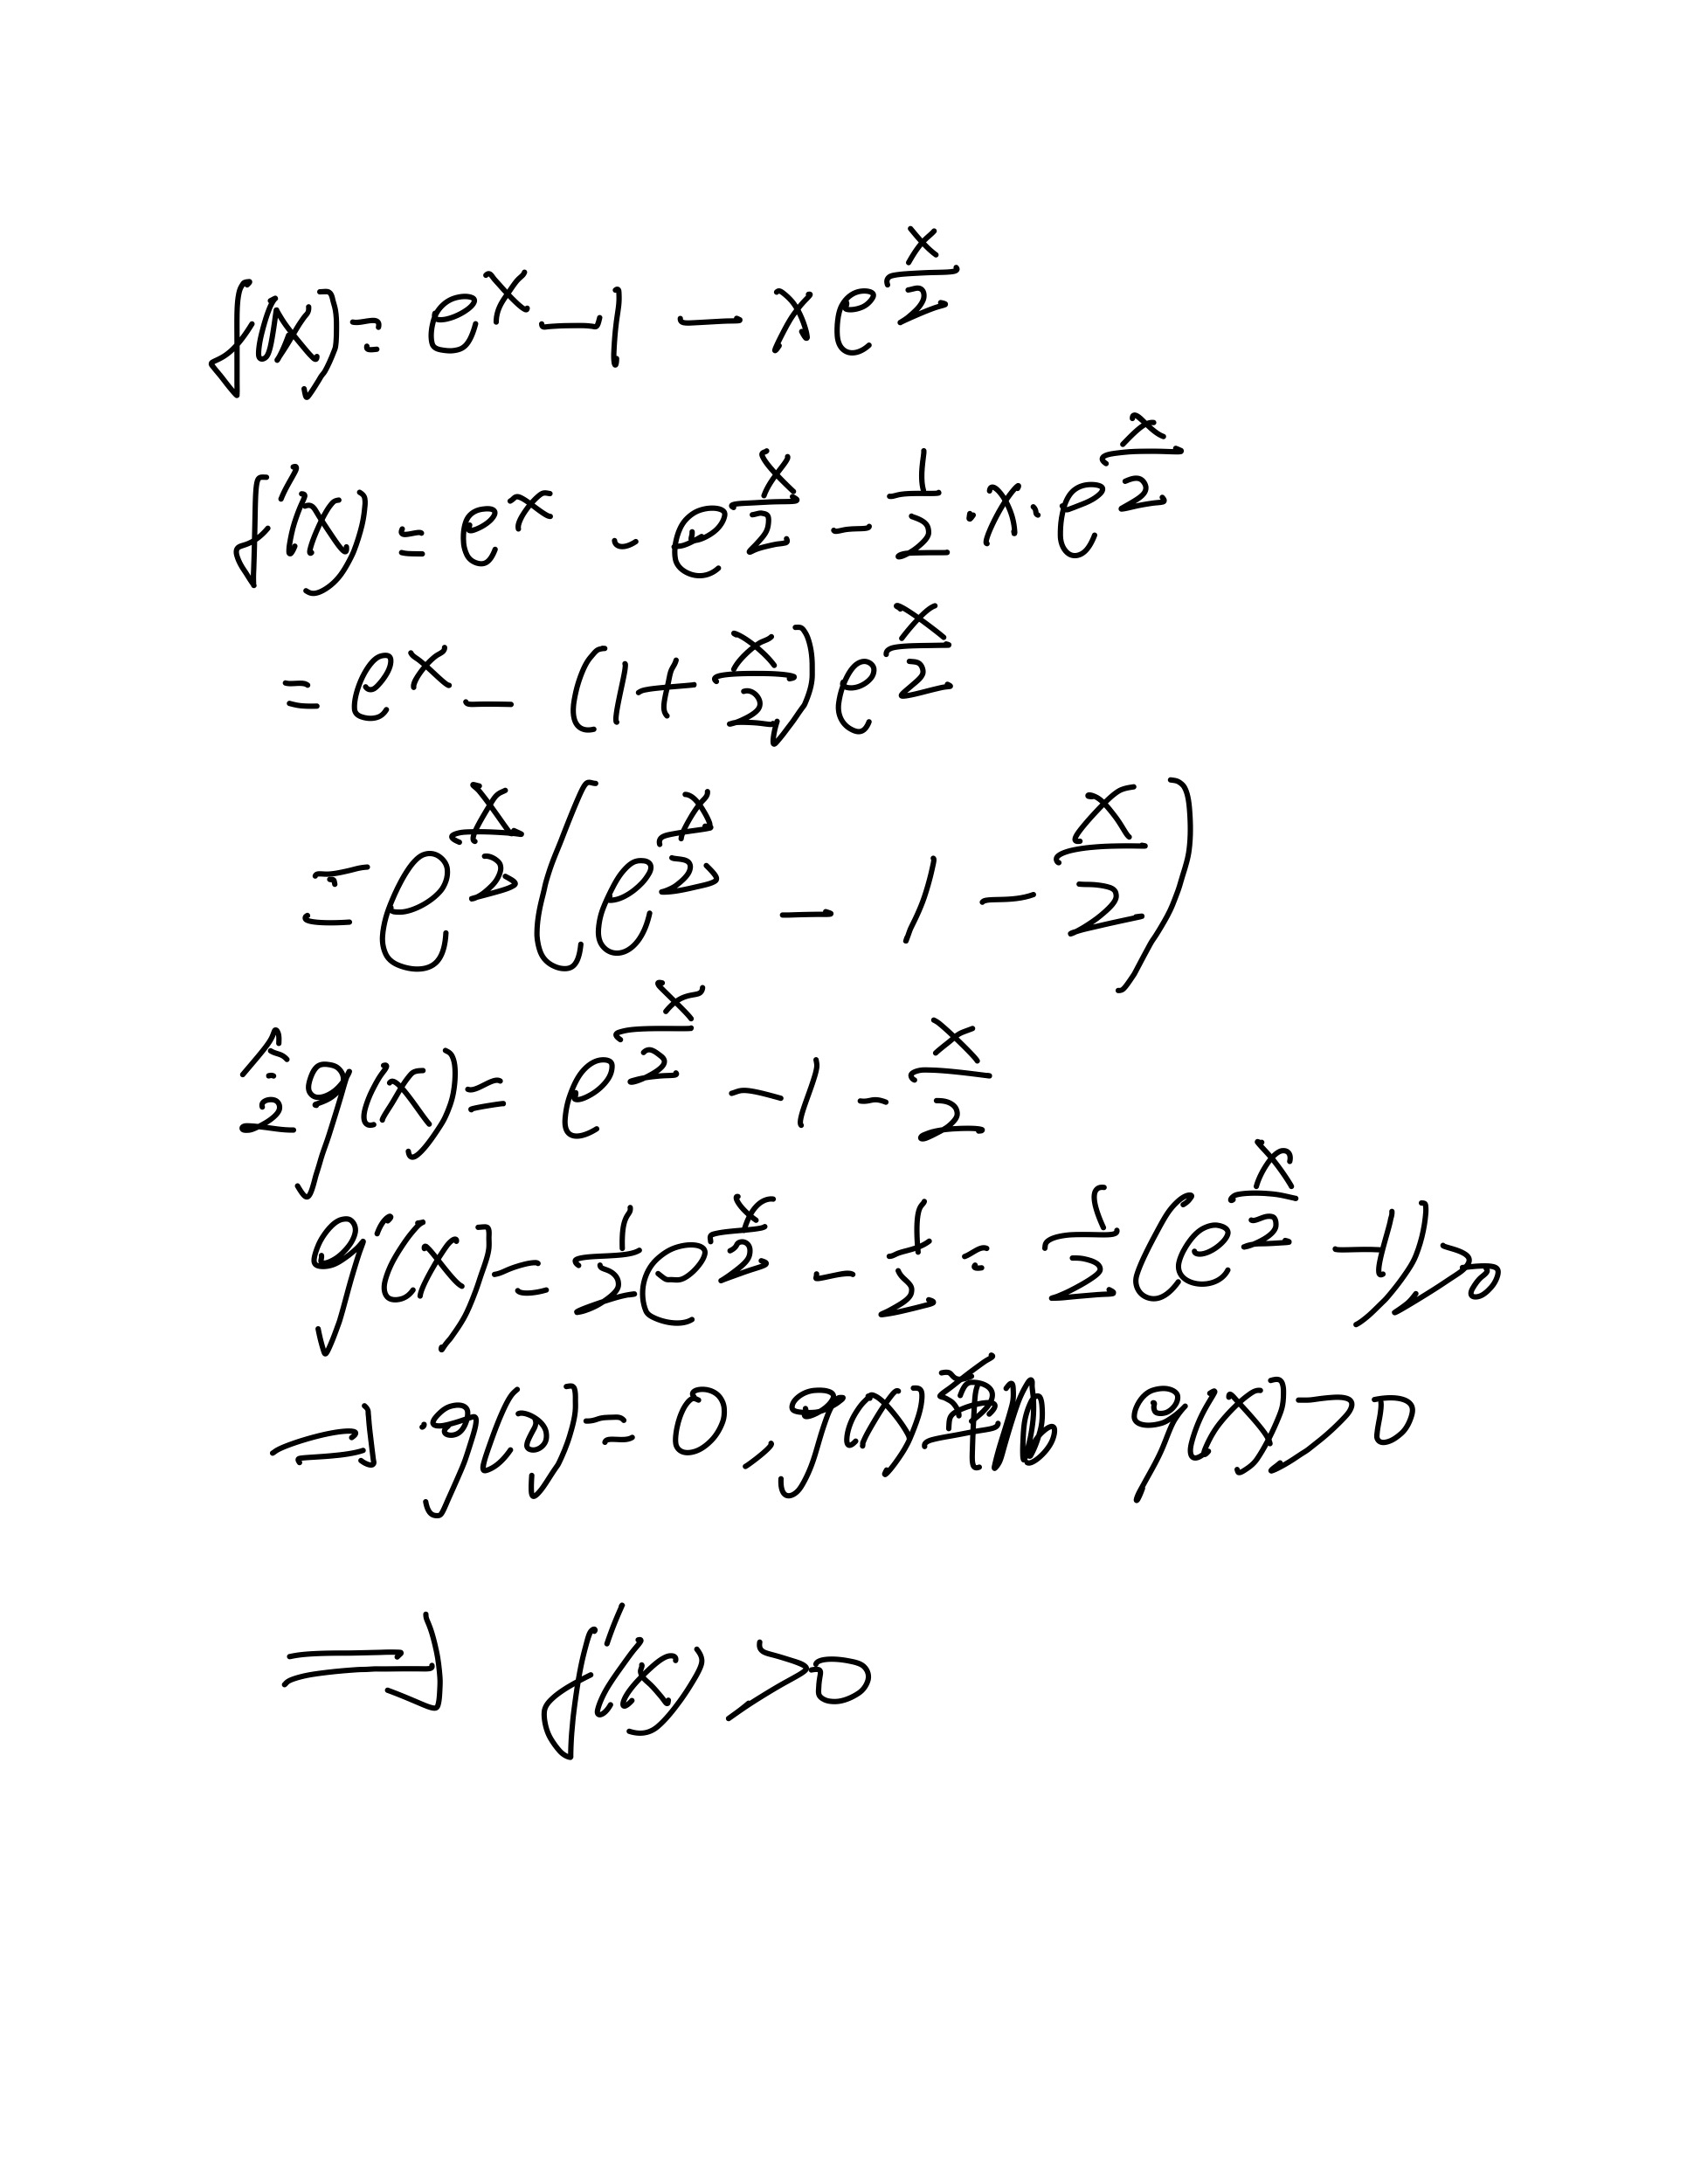 f(x) = e^x - 1 - x e^{x/2}
f'(x) = e^x - e^{x/2} - 1/2 · x · e^{x/2}
= e^x - (1 + x/2) e^{x/2}
= e^{x/2} (e^{x/2} - 1 - x/2)
令 g(x) = e^{x/2} - 1 - x/2
g'(x) = 1/2 e^{x/2} - 1/2 = 1/2 (e^{x/2} - 1) > 0
⇒ g(0) = 0, g(x) g(x) > 0
⇒ f'(x) > 0